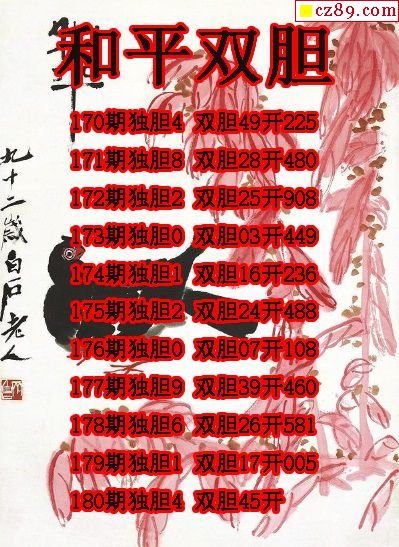 cz89.com
和平
和平双胆
170期独胆4 双胆49开225
171期独胆8 双胆28开480
172期独胆2 双胆25开908
173期独胆0 双胆03开449
174期独胆1 双胆16开236
175期独胆2 双胆24开488
176期独胆0 双胆07开108
177期独胆9 双胆39开460
178期独胆6 双胆26开581
179期独胆1 双胆17开005
180期独胆4 双胆45开
九十二岁白石老人